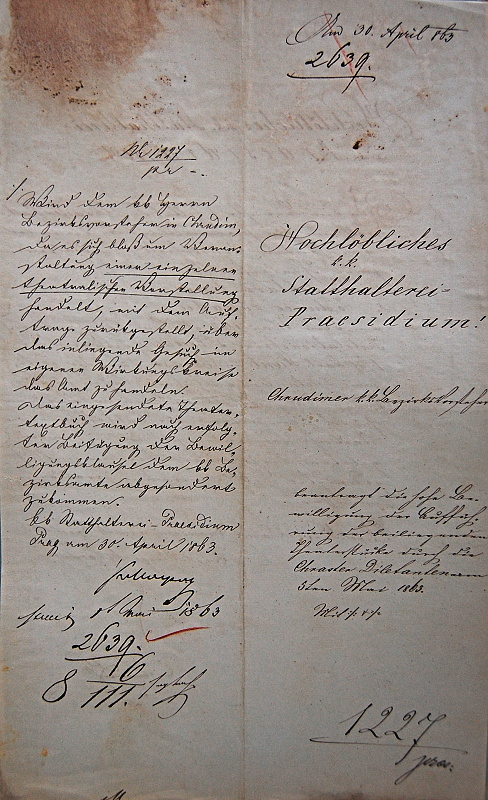 30. April 863
2639.
Nr 1227
pr
Wird dem kk Herrn
Bezirksvorsteher in Chrudim,
da es sich bloß um Veran-
staltung einer einzelnen
theatralischen Vorstellung
handelt, mit dem Auf-
trage zurückgestellt, über
das inliegende Gesuch im
eigenen Wirkungskreise
das Amt zu handeln.
Das eingesendete Theater-
textbuch wird nach erfolg-
ter Beifügung der Bewil-
ligungsklausel dem kk Be-
zirksamte abgesondert
zukommen.
kk Statthalterei-Praesidium
Prag am 30. April 1863.
1t Mai 1863
2639.
16
8 111.
Hochlöbliches
k.k.
Statthalterei-
Praesidium!
Chrudimer k.k. Bezirksvorsteher
beantragt die hohe Be-
willigung der Aufführ-
ung der beiliegenden
Theaterstücke durch die
Chraster Diletanten am
5ten Mai 863.
1227
praes.